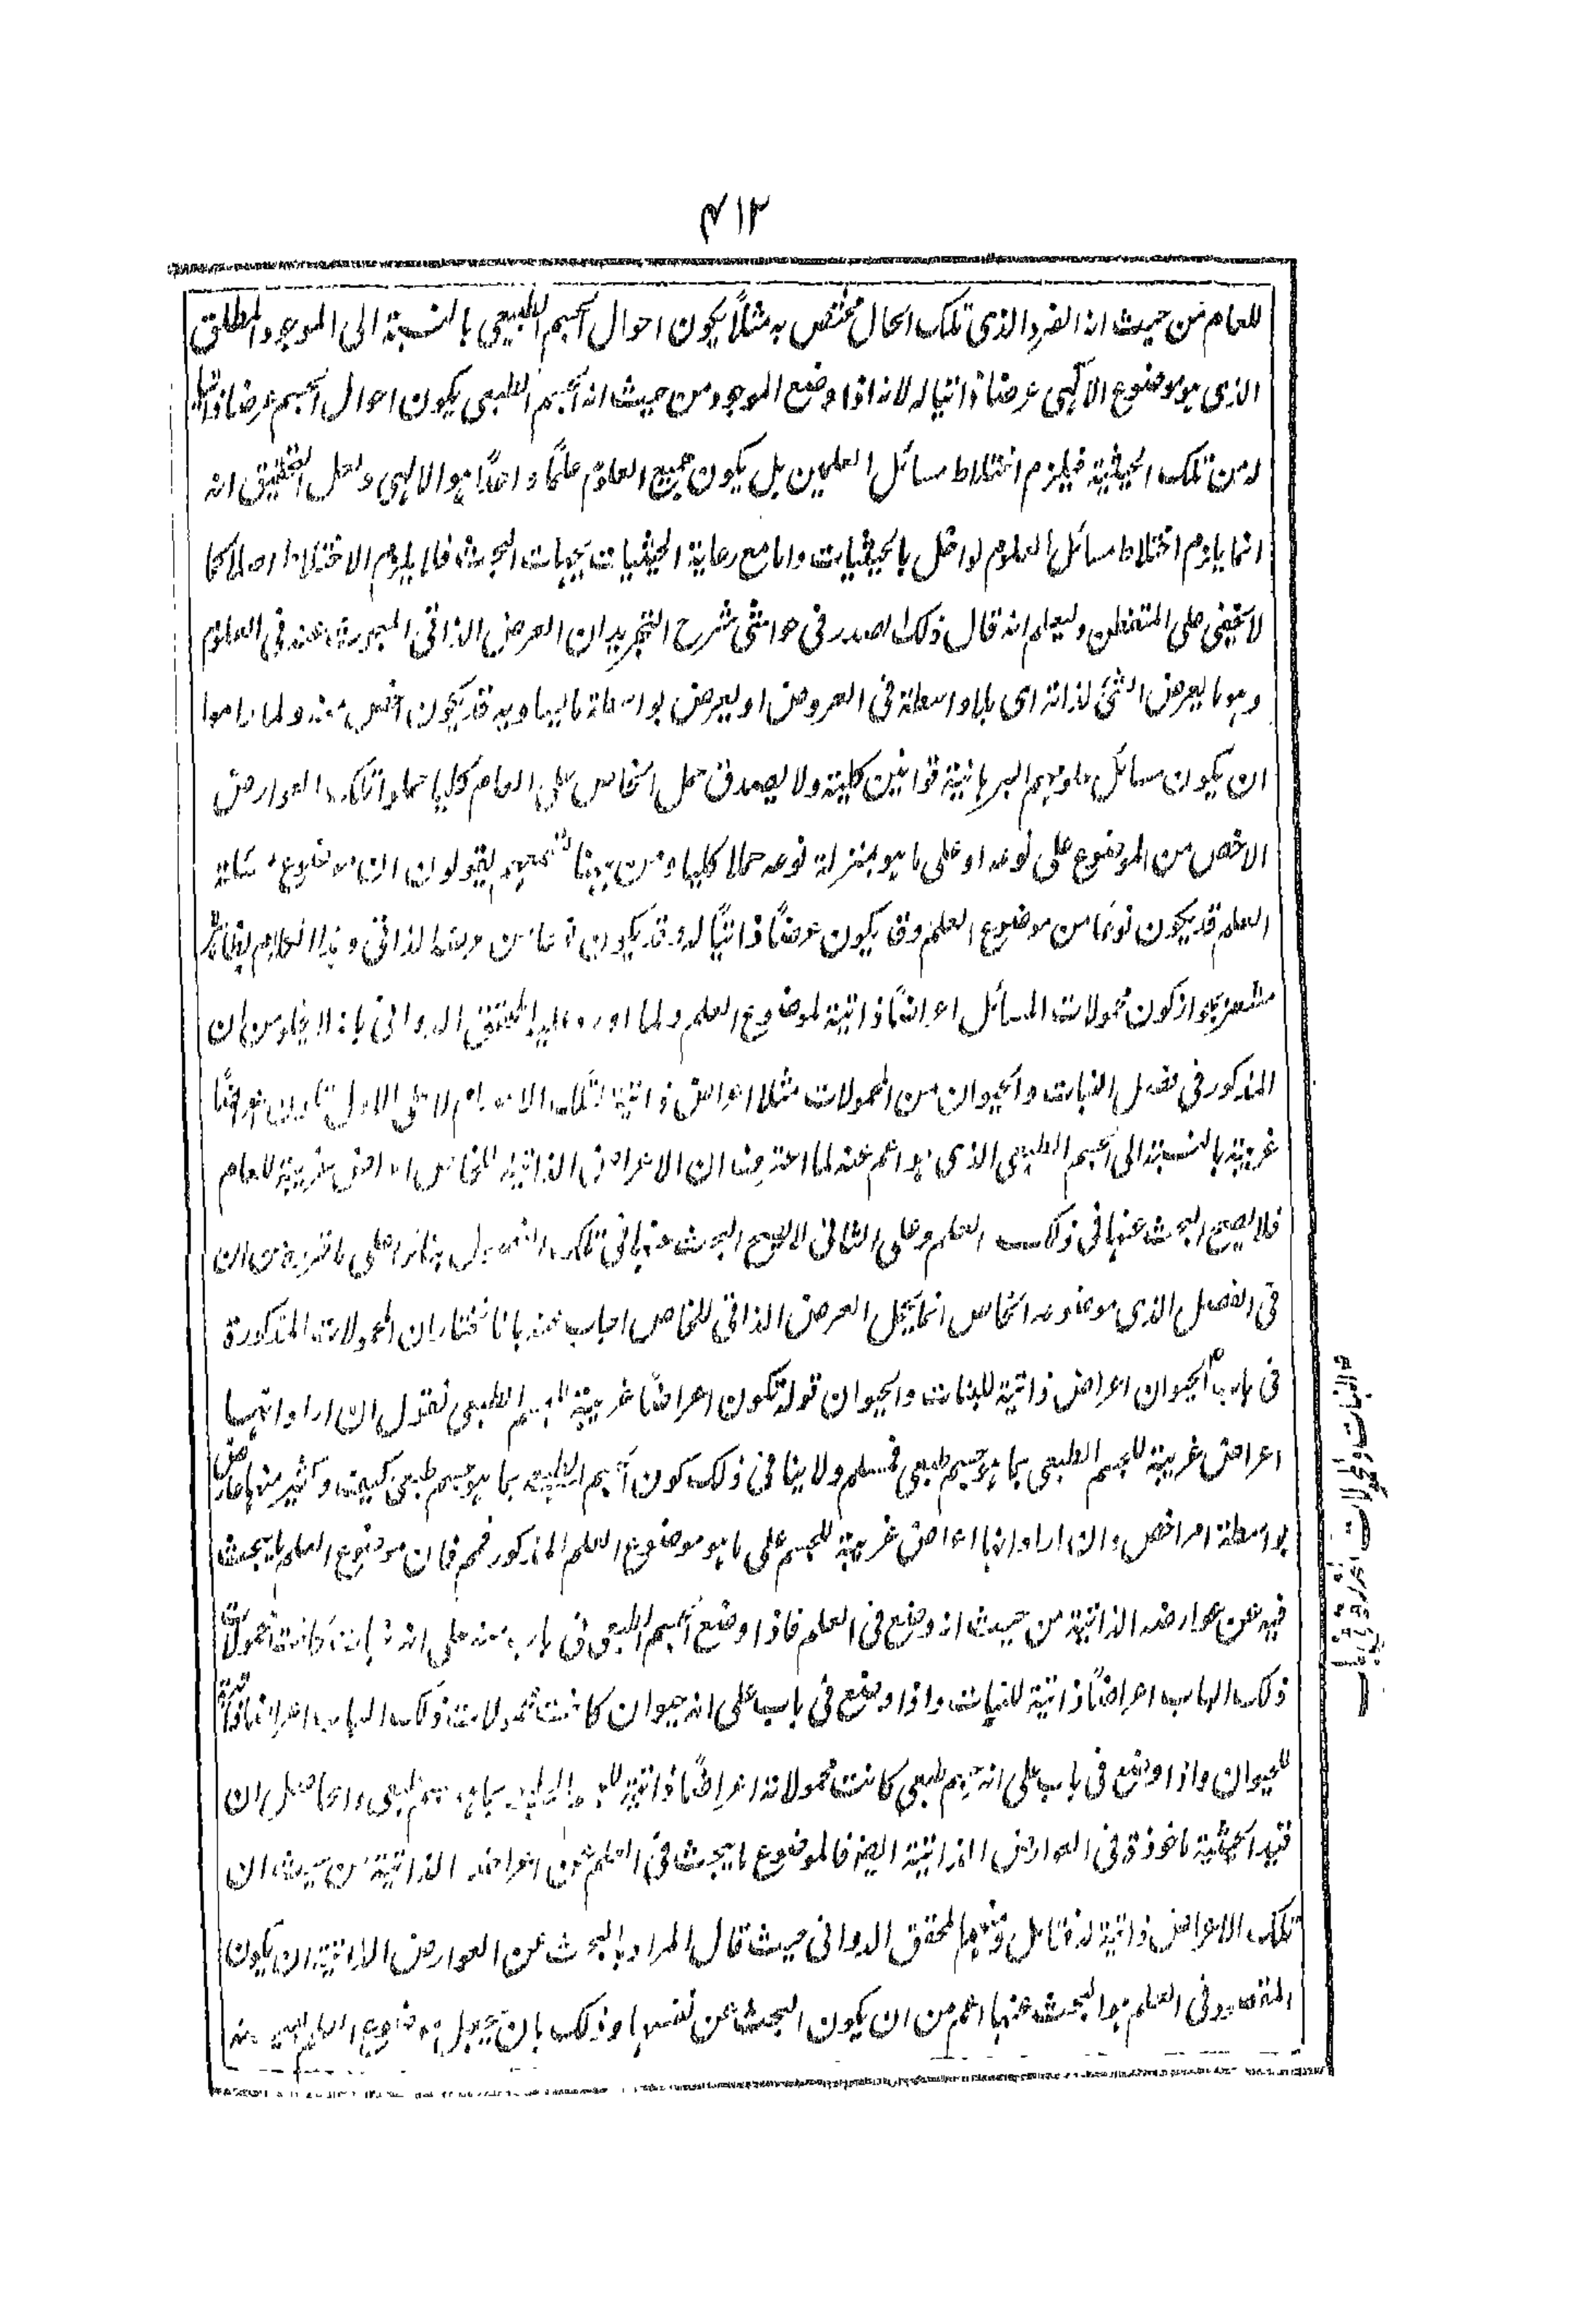 ٤١٢
للعام من حيث انه الفرد الذي تلك الحال مختص به مثلاً يكون احوال الجسم الطبيعي بالنسبة الى الموجود المطلق
الذي هو موضوع الالٰهي عرضا ذاتيا له لانه اذا وضع الموجود من حيث انه الجسم الطبيعي يكون احوال الجسم عرضا ذاتيا
له من تلك الحيثية فيلزم اختلاط مسائل العلمين بل يكون جميع العلوم علمًا واحدًا هو الالهي ولعل التحقيق انه
انما يلزم اختلاط مسائل العلوم لو اخل بالحيثيات واما مع رعاية الحيثيات بجهات البحث فلا يلزم الاختلاط اصلا كما
لا يخفى على المتفطن وليعلم انه قال ذلك الصدر في حواشي شرح التجريد ان العرض الذاتي المبحوث عنه في العلوم
وهو ما يعرض الشئ لذاته اى بلا واسطة في العروض او يعرض بواسطة ما يساويه قد يكون اخص منه ولما راموا
ان يكون مسائل علومهم البرهانية قوانين كلية ولا يصدق حمل الخاص على العام كليا حملوا تلك العوارض
الاخص من الموضوع على نوعه او على ما هو بمنزلة نوعه حملا كليا ومن ههنا تسمعهم يقولون ان موضوع مسئلة
العلم قد يكون نوعًا من موضوع العلم وقد يكون عرضًا ذاتيًا له وقد يكون نوعا من عرضه الذاتي وهذا الكلام
مشعر بجواز كون محمولات المسائل اعراضًا ذاتية لموضوع العلم ولما اورد عليه المحقق الدواني بانه لا يخلو من ان
المذكور في فصل النبات والحيوان من المحمولات مثلا اعراض ذاتية لتلك الاجسام اولا على الاول تكون عوارضًا
غريبة بالنسبة الى الجسم الطبيعي الذي هو اعم عنه لما اعترف ان الاعراض الذاتية للخاص اعراض غريبة للعام
فلا يصح البحث عنها في ذلك العلم وعلى الثاني لا يصح البحث عنها في تلك الفصول بناءا على ما تقرر من ان
في الفصل الذي موضوعه الخاص انما يحمل العرض الذاتي للخاص اجاب عنه بانا نختار ان المحمولات المذكورة
في باب الحيوان اعراض ذاتية للنبات والحيوان قوله تكون اعراضًا غريبة للجسم الطبيعي نقول ان ارادوا انها
اعراض غريبة للجسم الطبيعي بما هو جسم طبيعي فمسلم ولا ينافى ذلك كون الجسم الطبيعي بما هو جسم طبعى كيف وكثير منها عارض
بواسطة امر اخص وان ارادوا انها اعراض غريبة للجسم على ما هو موضوع العلم المذكور فمم فان موضوع العلم ما يبحث
فيه عن عوارضه الذاتية من حيث انه وضع في العلم فاذا وضع الجسم الطبعى في باب منه على انه نبات كانت محمولات
ذلك الباب اعراضًا ذاتية للنبات واذا وضع في باب على انه حيوان كانت محمولات ذلك الباب اعراضا ذاتية
للحيوان واذا وضع في باب على انه جسم طبعي كانت محمولاته اعراضًا ذاتية للجسم الطبيعي بما هو جسم طبعى والحاصل ان
قيد الحيثية ماخوذة في العوارض الذاتية ايضا فالموضوع ما يبحث في العلم عن اعراضه الذاتية من حيث ان
تلك الاعراض ذاتية له فتامل المحقق الدواني حيث قال المراد بالبحث عن العوارض الذاتية ان يكون
المقصود في العلم هو البحث عنها اعم من ان يكون البحث عن نفسها وذلك بان يجعل موضوع العلم
النبات ومحمولات